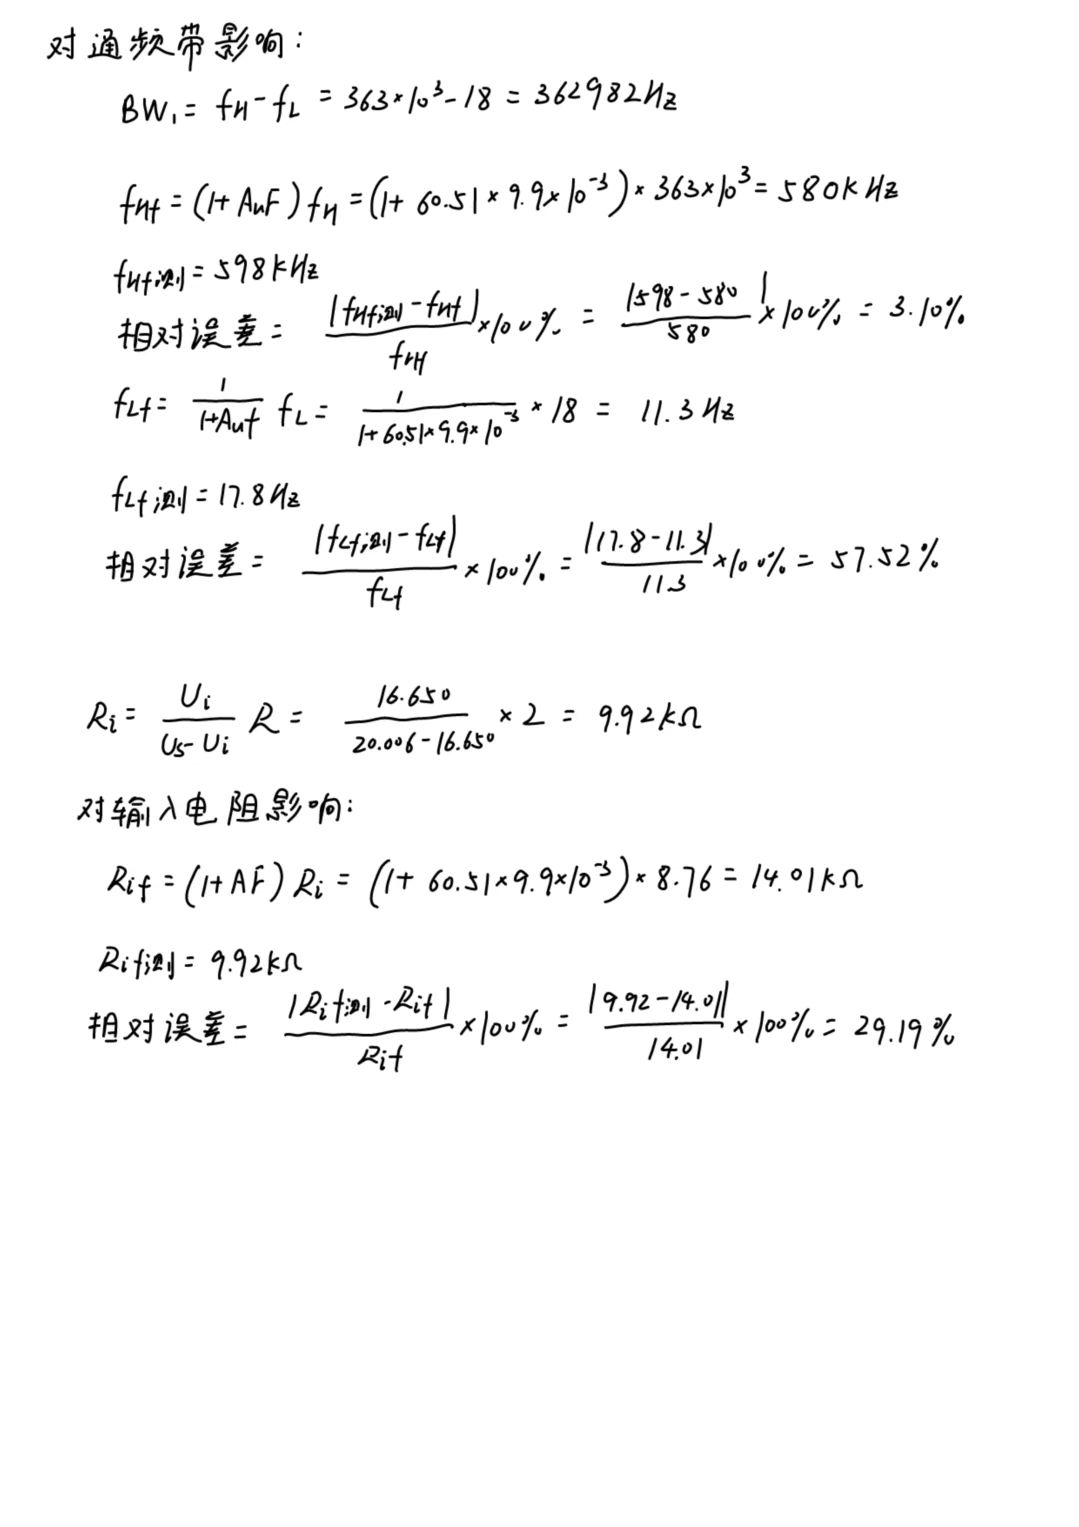 对通频带影响:
BW₁ = fH - fL = 363×10³ - 18 = 362982Hz
fHf = (1+AuF) fH = (1+ 60.51 × 9.9×10⁻³) × 363×10³ = 580KHz
fHf测 = 598KHz
相对误差 = |fHf测 - fHf| / fHf ×100% = |598 - 580| / 580 ×100% = 3.10%
fLf = 1 / (1+Auf) fL = 1 / (1+60.51×9.9×10⁻³) × 18 = 11.3Hz
fLf测 = 17.8Hz
相对误差 = |fLf测 - fLf| / fLf ×100% = |17.8 - 11.3| / 11.3 ×100% = 57.52%
Ri = Ui / (Us - Ui) R = 16.650 / (20.006 - 16.650) × 2 = 9.92kΩ
对输入电阻影响:
Rif = (1+AF) Ri = (1+ 60.51×9.9×10⁻³) × 8.76 = 14.01kΩ
Rif测 = 9.92kΩ
相对误差 = |Rif测 - Rif| / Rif ×100% = |9.92 - 14.01| / 14.01 ×100% = 29.19%